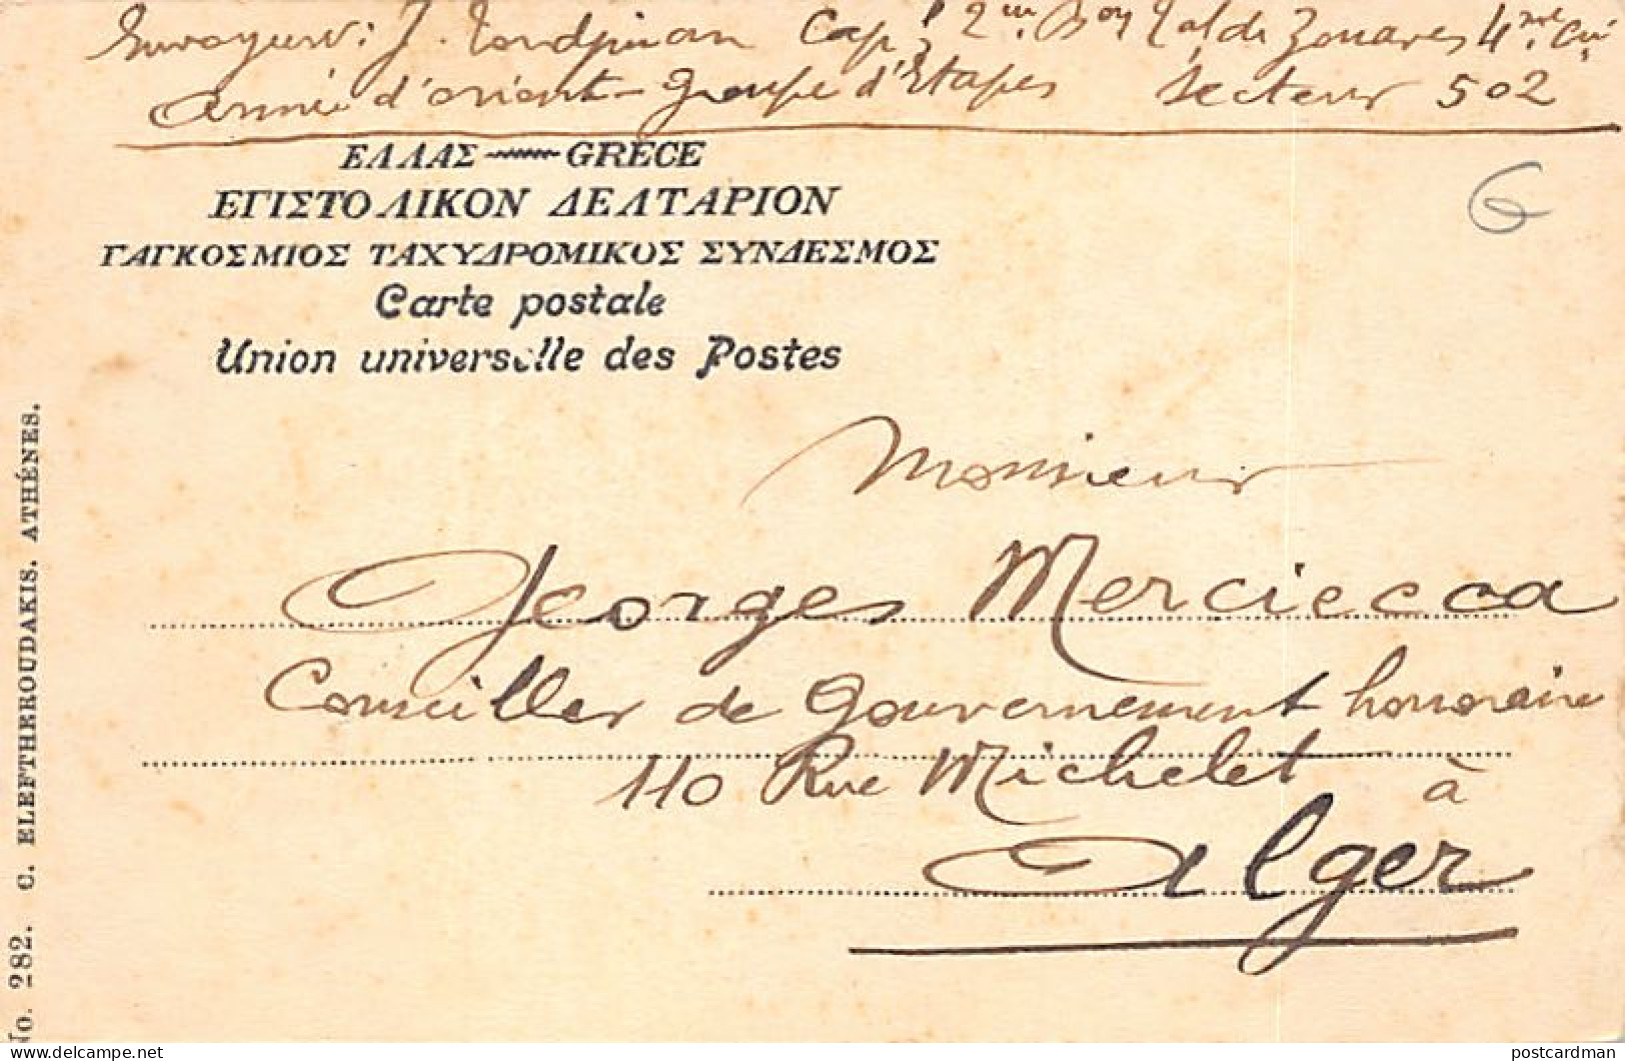 Envoyeur: J. Tordjman Capl 2me Bon Tal de Zouaves 4me Cie
Armée d'orient - Groupe d'Etapes Secteur 502
ΕΛΛΑΣ GRECE
ΕΓΙΣΤΟΛΙΚΟΝ ΔΕΛΤΑΡΙΟΝ
ΓΑΓΚΟΣΜΙΟΣ ΤΑΧΥΔΡΟΜΙΚΟΣ ΣΥΝΔΕΣΜΟΣ
Carte postale
Union universelle des Postes
Monsieur
Georges Merciecca
Conseiller de Gouvernement honoraire
110 Rue Michelet à
Alger
No. 282. C. ELEFTHEROUDAKIS. ATHÉNES.
www.delcampe.net
postcardman